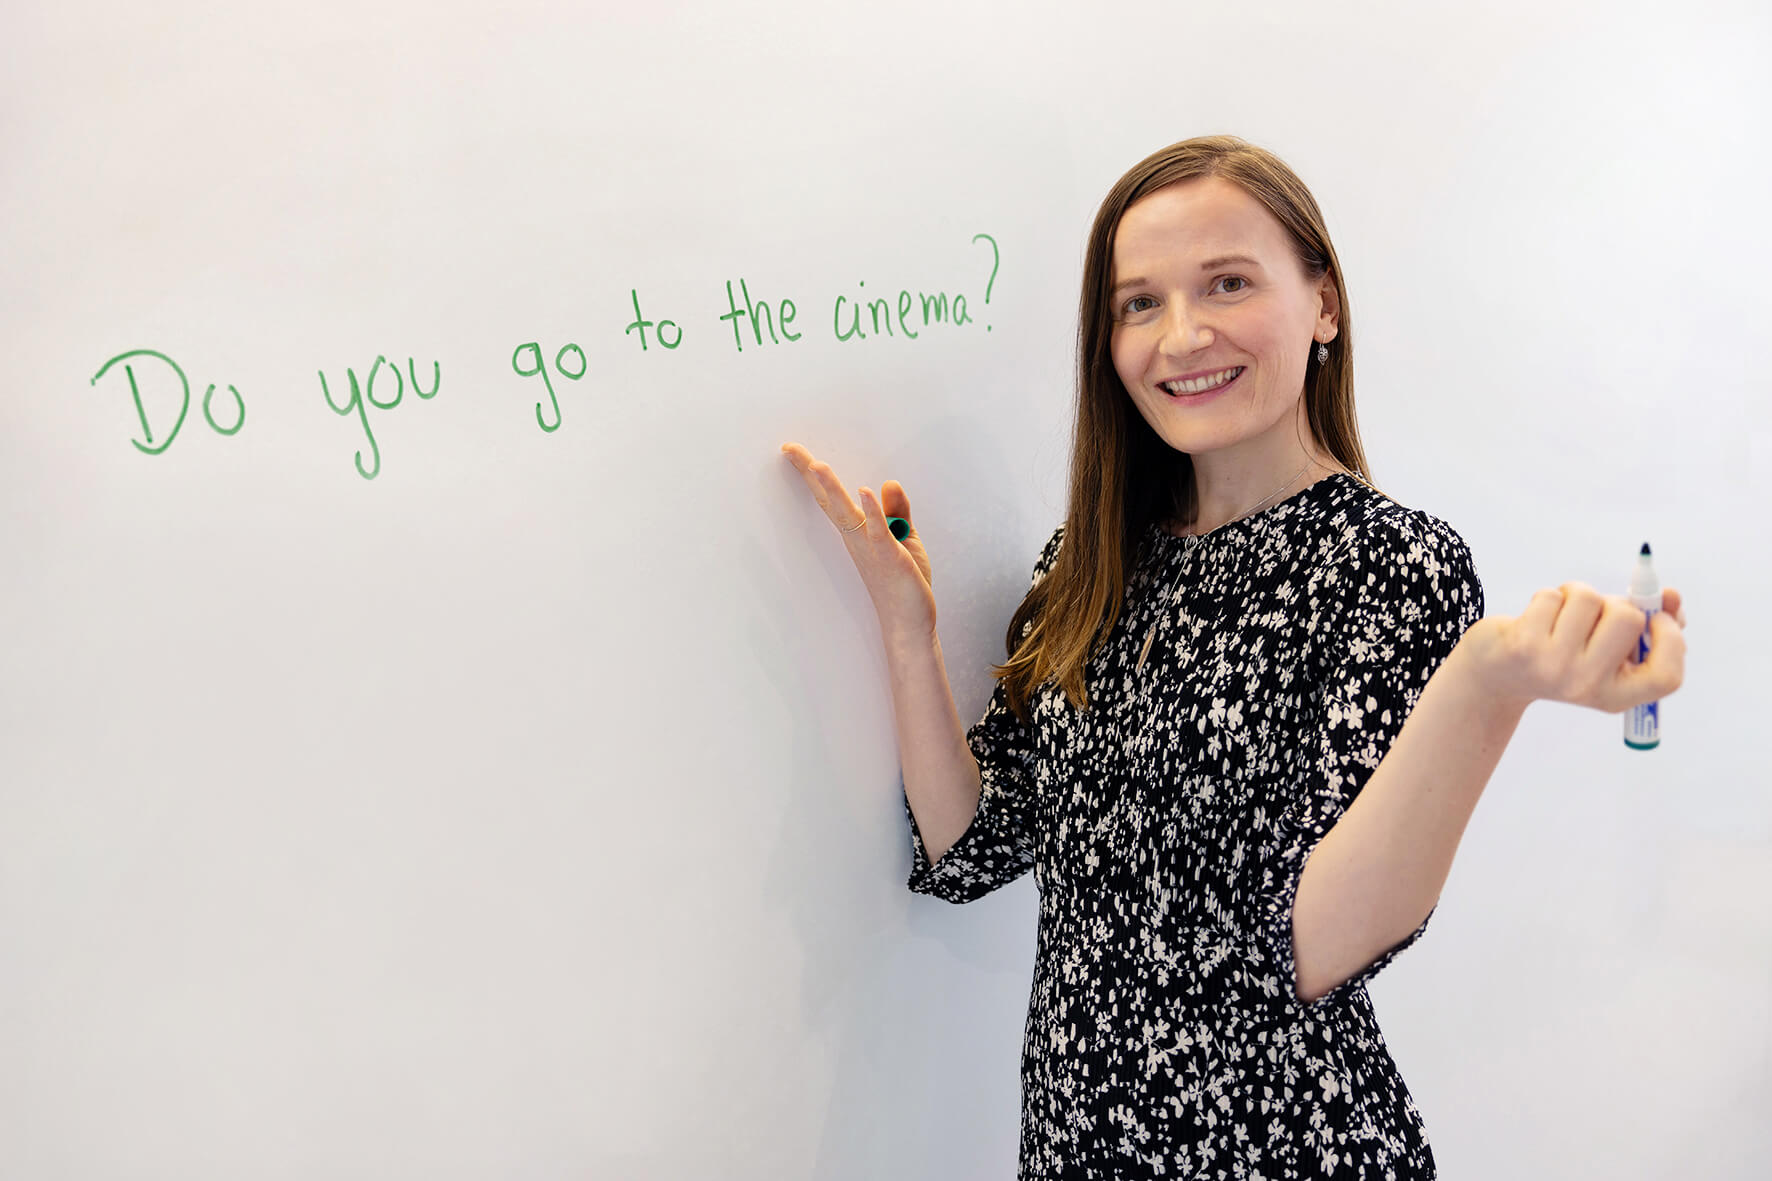 Do you go to the cinema?